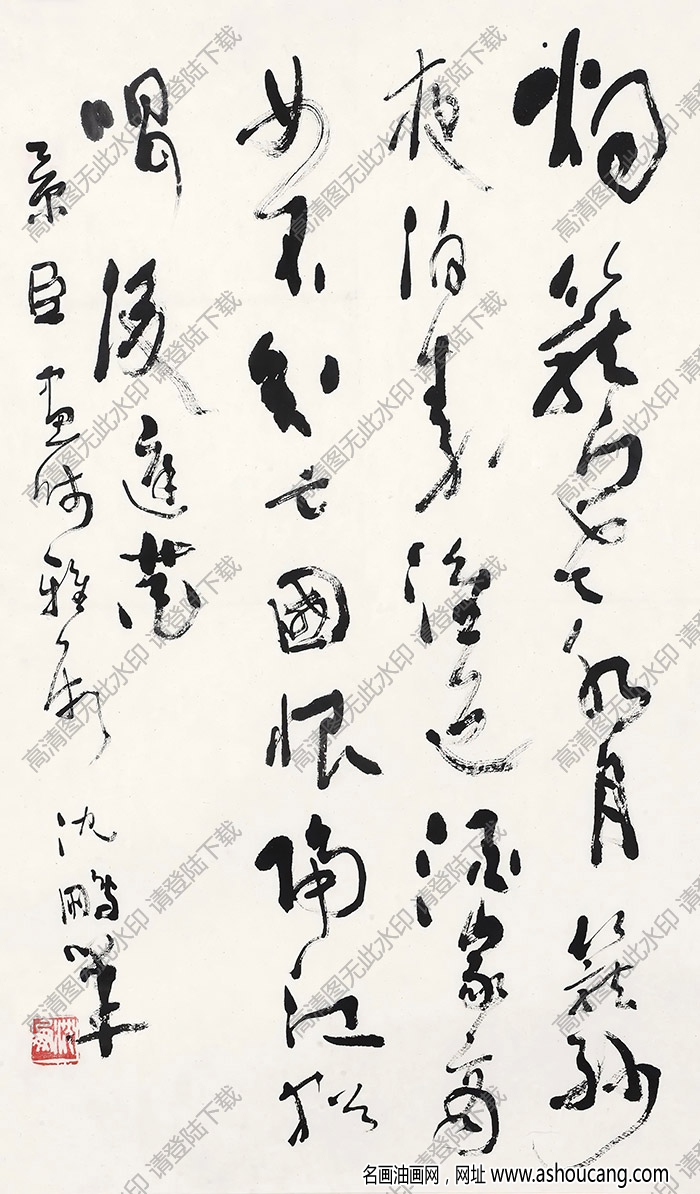 烟籠寒水月籠紗
夜泊秦淮近酒家商
女不知亡國恨隔江猶
唱後庭花
景臣畫師雅屬 沈鵬筆
高清图无此水印 请登陆下载
名画油画网，网址 www.ashoucang.com